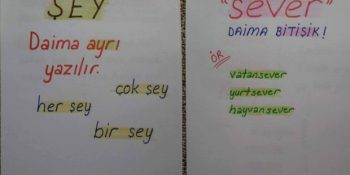 ŞEY
Daima ayrı
yazılır.
çok şey
her şey
bir şey
"sever"
DAİMA BİTİŞİK!
ÖR
vatansever
yurtsever
hayvansever